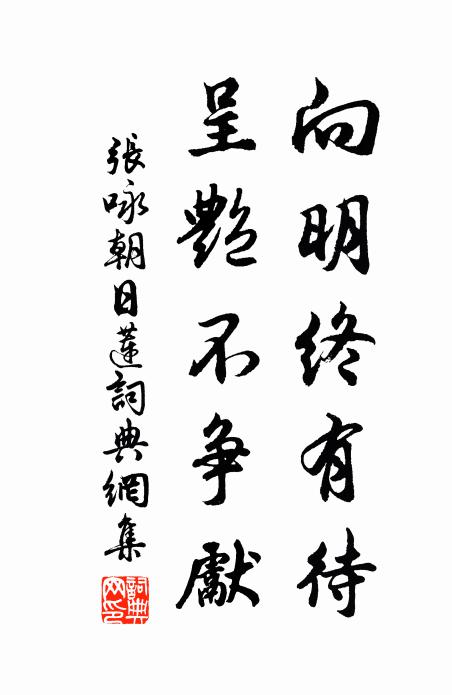 向明終有待
呈艷不争獻
張咏朝日蓮詞典網集
詞典